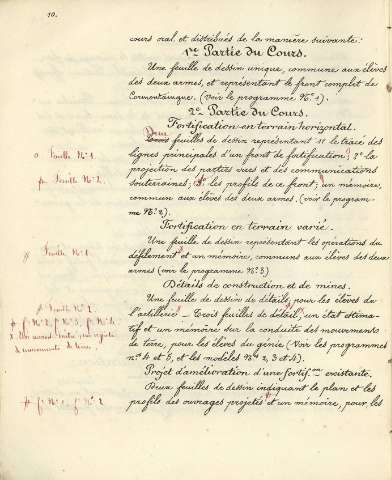 10.
cours oral et distribués de la manière suivante:
1re Partie du Cours.
Une feuille de dessin unique, commune aux élèves
des deux armes, et représentant le front complet de
Cormontaingne. (Voir le programme No 1).
2e Partie du Cours.
Fortification en terrain horizontal.
Deux
feuilles de dessin représentant 1o le tracé des
o Feuille No 1.
lignes principales d'un front de fortification; 2o la
projection des parties vues et des communications
Feuille No 2.
souterraines; les profils de ce front; un mémoire,
commun aux élèves des deux armes. (voir le program-
me No 2).
Fortification en terrain varié.
Une feuille de dessin représentant les opérations du
Feuille No 1.
défilement et un mémoire, communs aux élèves des deux
armes (voir le programme No 3)
Détails de construction et de mines.
Une feuille de dessin de détails, pour les élèves de
Feuille No 2
l'artillerie — Trois feuilles de détail, un état estima-
f. No 2, f. No 3, f. No 4.
tif et un mémoire sur la conduite des mouvements
de terre, pour les élèves du génie (Voir les programmes
mouvements de terre.
no 4 et 5, et les modèles Nos 2, 3 et 4).
Projet d'amélioration d'une fortif.on existante.
Deux feuilles de dessin indiquant le plan et les
f. No 1, f. No 2
profils des ouvrages projetés et un mémoire, pour les